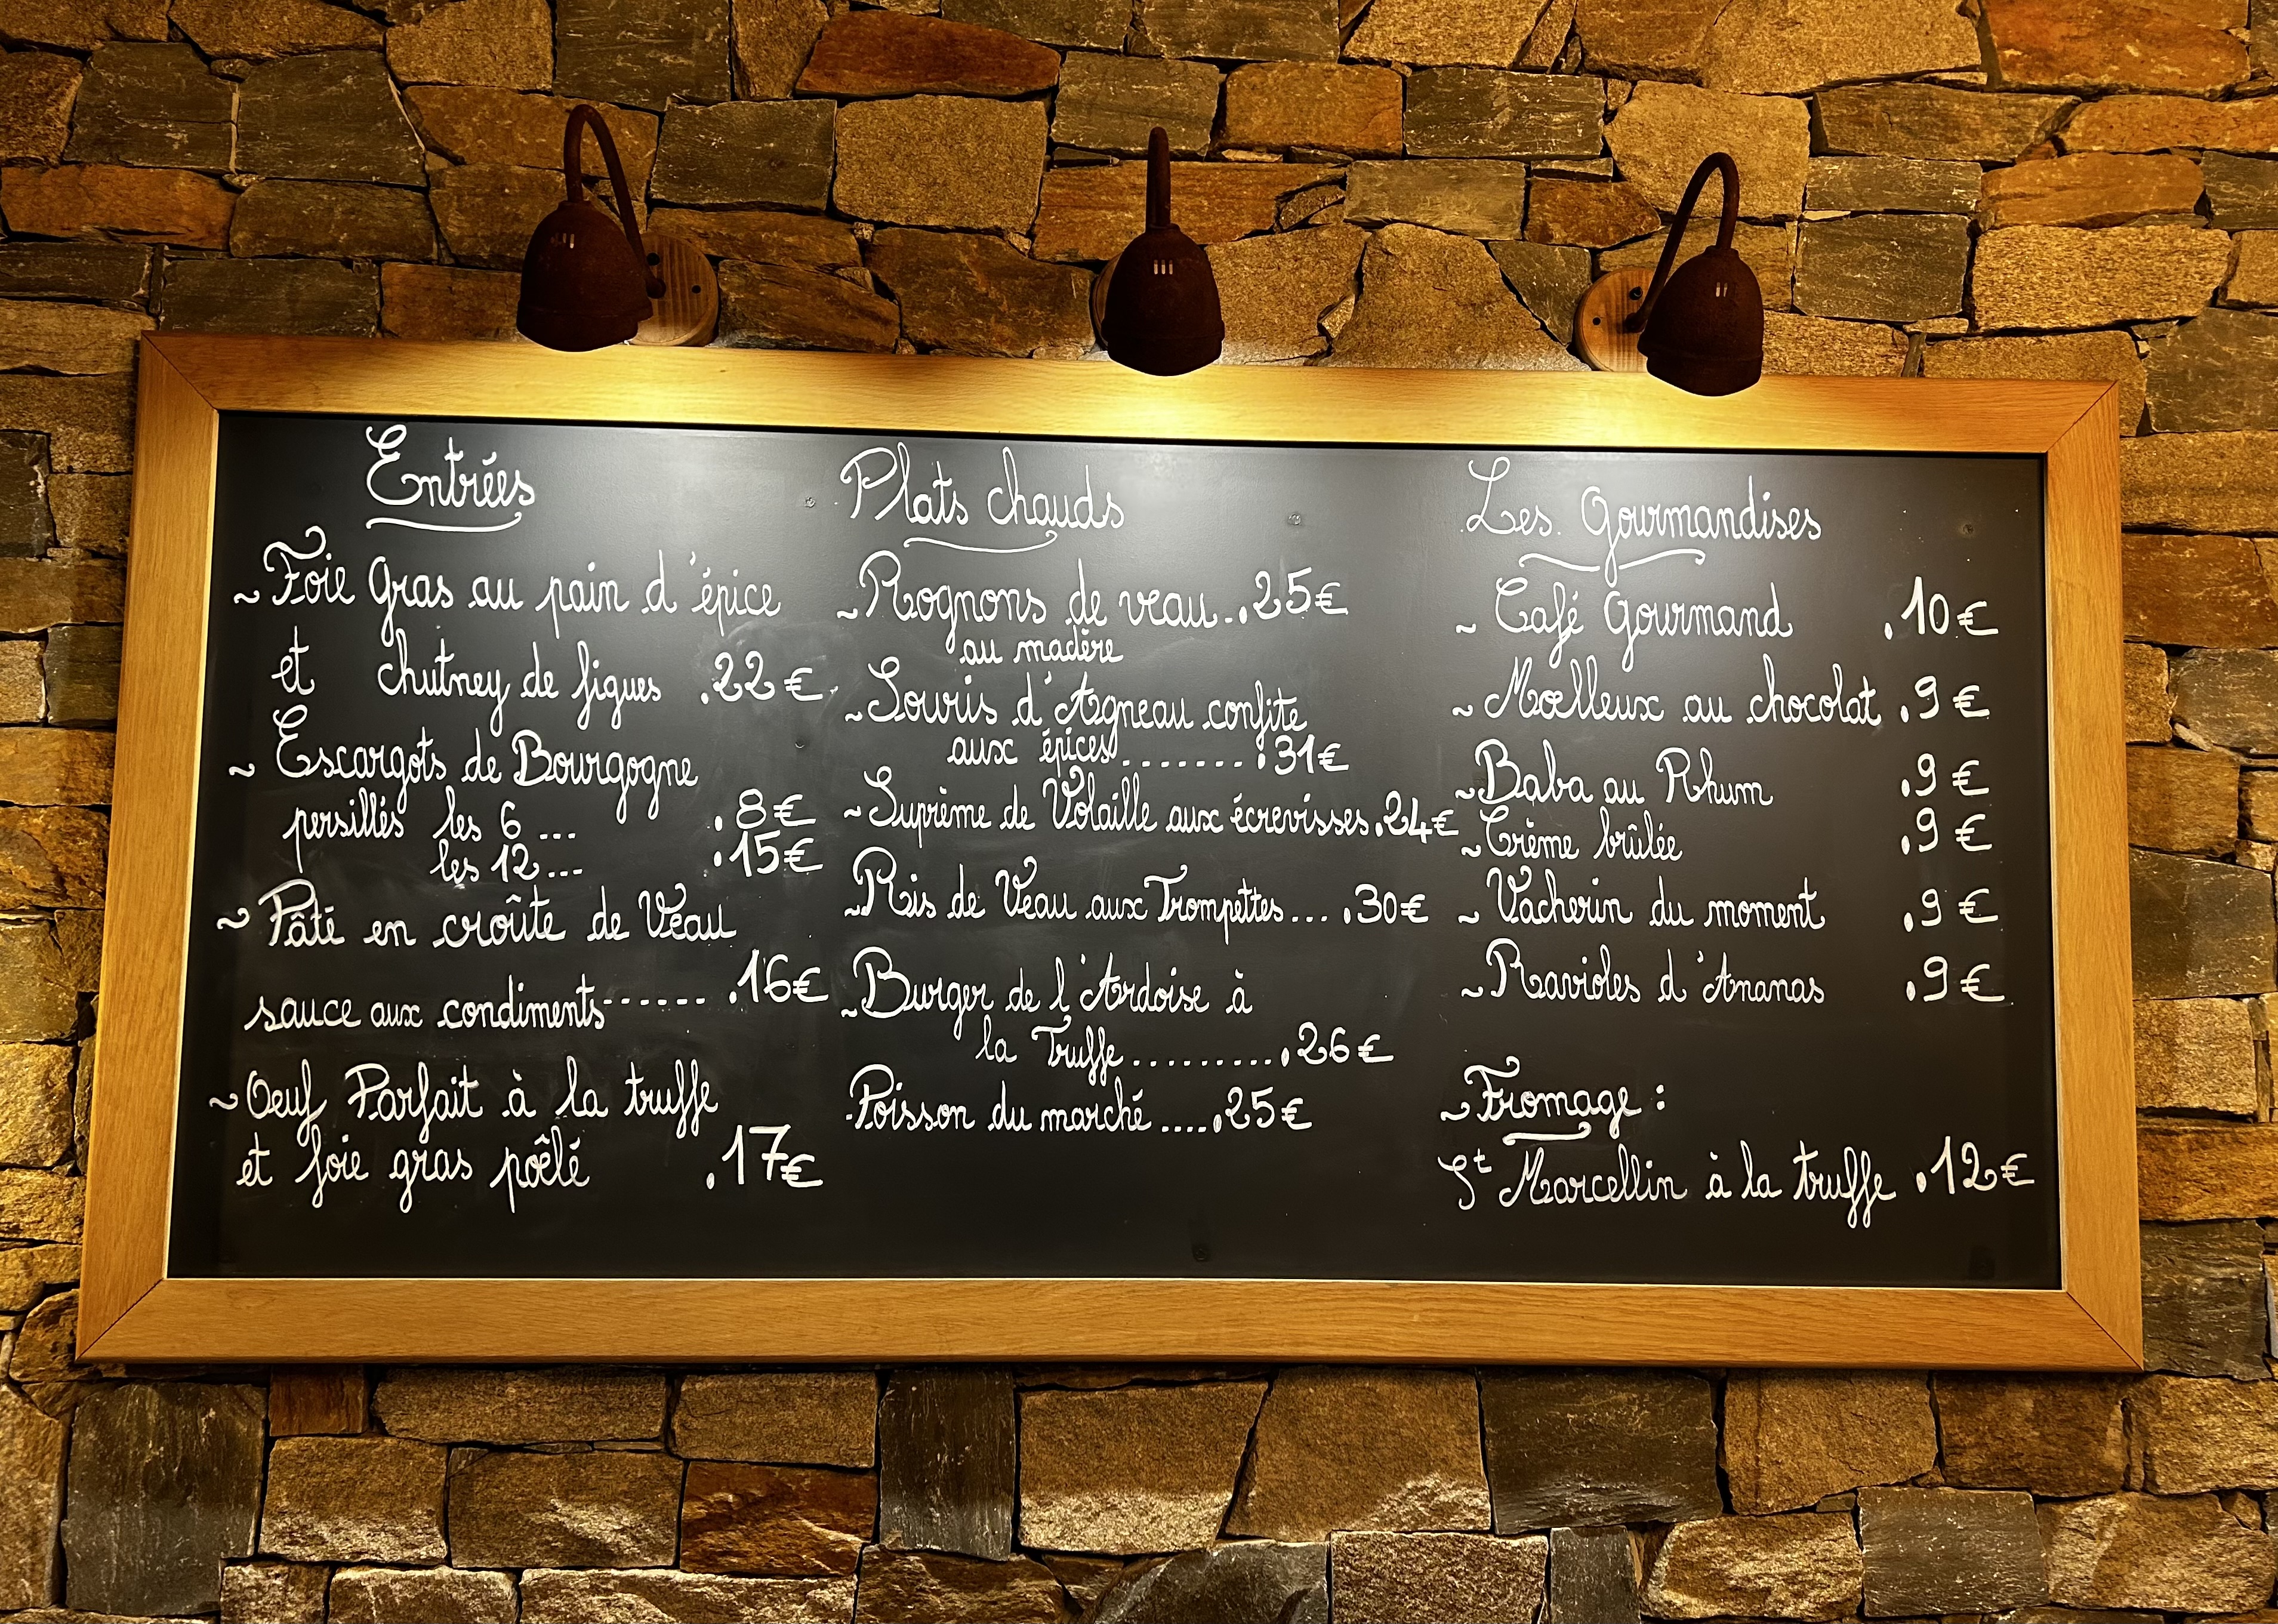 Entrées
~ Foie Gras au pain d'épice
et chutney de figues .22€
~ Escargots de Bourgogne
persillés les 6 ... .8€
les 12... .15€
~ Pâté en croûte de Veau
sauce aux condiments------ .16€
~ Oeuf Parfait à la truffe
et foie gras poêlé .17€
Plats chauds
~Rognons de veau...25€
au madère
~Souris d'Agneau confite
aux épices........ .31€
~Suprême de Volaille aux écrevisses.24€
~Ris de Veau aux Trompettes... .30€
~Burger de l'Ardoise à
la Truffe...........26€
.Poisson du marché .....25€
Les Gourmandises
~ Café Gourmand .10€
~ Mœlleux au chocolat .9€
~Baba au Rhum .9€
~Crème brûlée .9€
~ Vacherin du moment .9€
~ Ravioles d'Ananas .9€
~Fromage :
St Marcellin à la truffe .12€